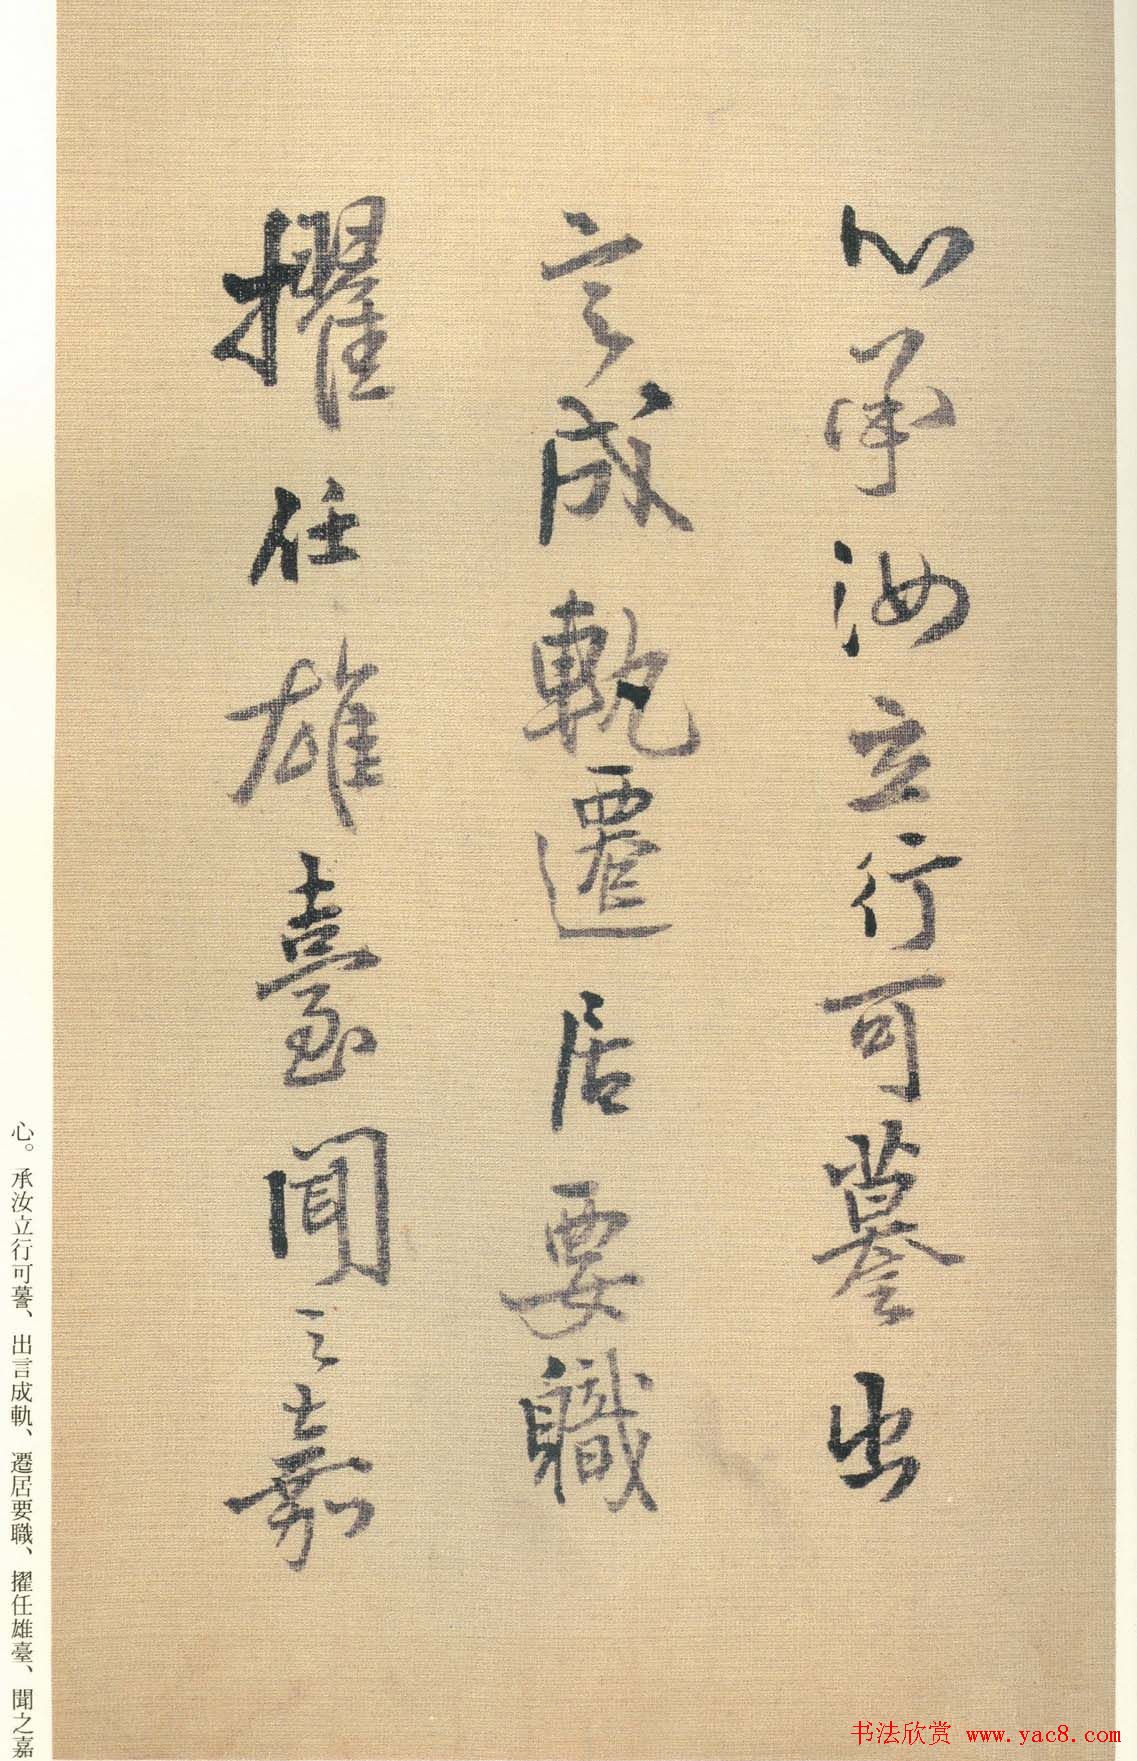 心承汝立行可謩出
言成軌遷居要職
擢任雄臺聞之嘉
心。承汝立行可謩、出言成軌、遷居要職、擢任雄臺、聞之嘉
书法欣赏 www.yac8.com